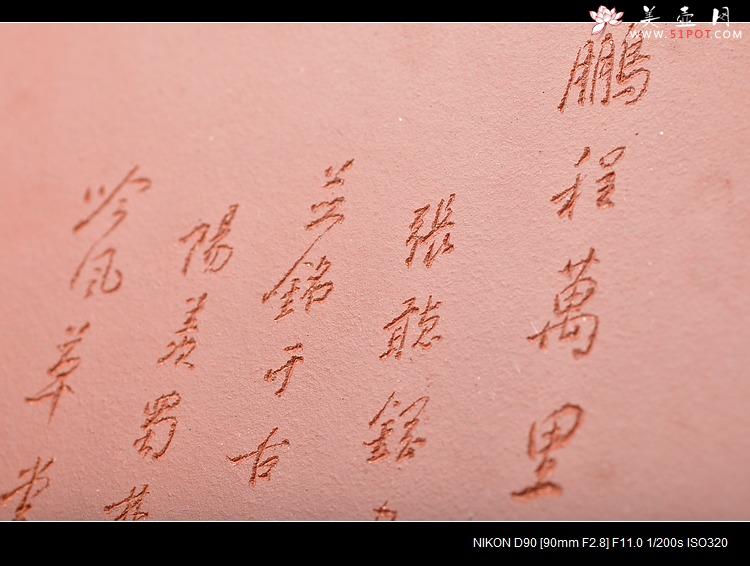 美壶网
WWW.51POT.COM
鵬程萬里
張聽銘
并銘于古
陽羨蜀
吟風草堂
NIKON D90 [90mm F2.8] F11.0 1/200s ISO320